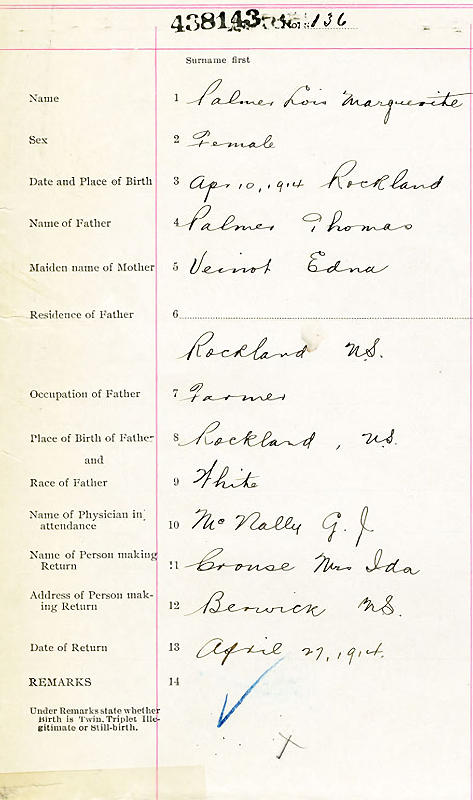 438143 No. 136
Surname first
Name 1 Palmer Lois Marguerite
Sex 2 Female
Date and Place of Birth 3 Apr 10, 1914 Rockland
Name of Father 4 Palmer Thomas
Maiden name of Mother 5 Veinot Edna
Residence of Father 6
Rockland N.S.
Occupation of Father 7 Farmer
Place of Birth of Father 8 Rockland, N.S.
and
Race of Father 9 White
Name of Physician in
attendance 10 McNally G. J.
Name of Person making
Return 11 Crouse Mrs Ida
Address of Person mak-
ing Return 12 Berwick N.S.
Date of Return 13 April 27, 1914.
REMARKS 14
Under Remarks state whether
Birth is Twin, Triplet Ille-
gitimate or Still-birth.